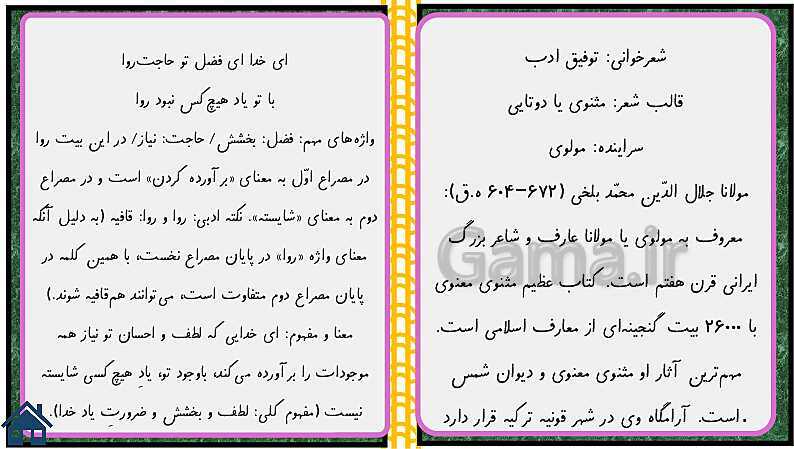 شعرخوانی: توفیق ادب
قالب شعر: مثنوی یا دوتایی
سراینده: مولوی
مولانا جلال الدّین محمّد بلخی (۶۷۲–۶۰۴ ه.ق):
معروف به مولوی یا مولانا عارف و شاعر بزرگ
ایرانی قرن هفتم است. کتاب عظیم مثنوی معنوی
با ۲۶۰۰۰ بیت گنجینه‌ای از معارف اسلامی است.
مهم‌ترین آثار او مثنوی معنوی و دیوان شمس
است. آرامگاه وی در شهر قونیه ترکیه قرار دارد.
Gama.ir
ای خدا ای فضل تو حاجت‌روا
با تو یاد هیچ‌کس نبود روا
واژه‌های مهم: فضل: بخشش/ حاجت: نیاز/ در این بیت روا
در مصراع اوّل به معنای «برآورده کردن» است و در مصراع
دوم به معنای «شایسته». نکته ادبی: روا و روا: قافیه (به دلیل آنکه
معنای واژه «روا» در پایان مصراع نخست، با همین کلمه در
پایان مصراع دوم متفاوت است، می‌توانند هم‌قافیه شوند.)
معنا و مفهوم: ای خدایی که لطف و احسان تو نیاز همه
موجودات را برآورده می‌کند، باوجود تو، یادِ هیچ‌کسی شایسته
نیست (مفهوم کلی: لطف و بخشش و ضرورتِ یاد خدا).